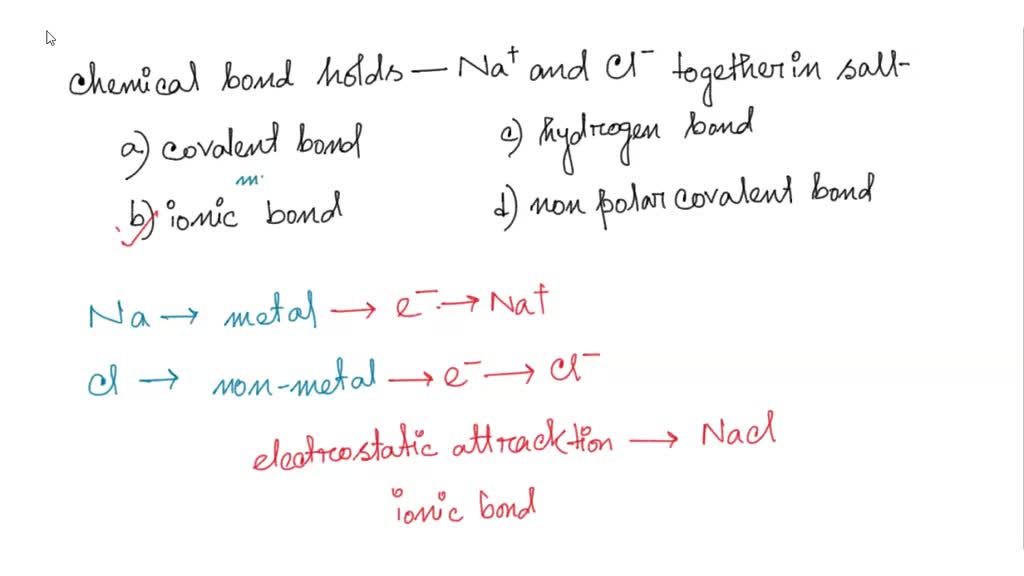 chemical bond holds — Na⁺ and Cl⁻ together in salt-
a) covalent bond
c) hydrogen bond
b) ionic bond
d) non polar covalent bond
Na → metal → e⁻ → Na⁺
Cl → non-metal → e⁻ → Cl⁻
electrostatic attracktion → Nacl
ionic bond